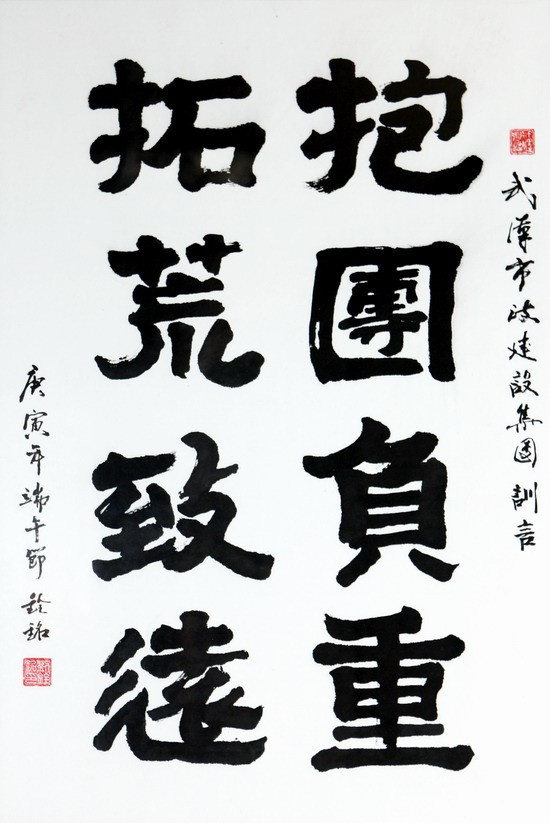 武漢市政建設集團訓言
抱團負重
拓荒致遠
庚寅年端午節 銓銘